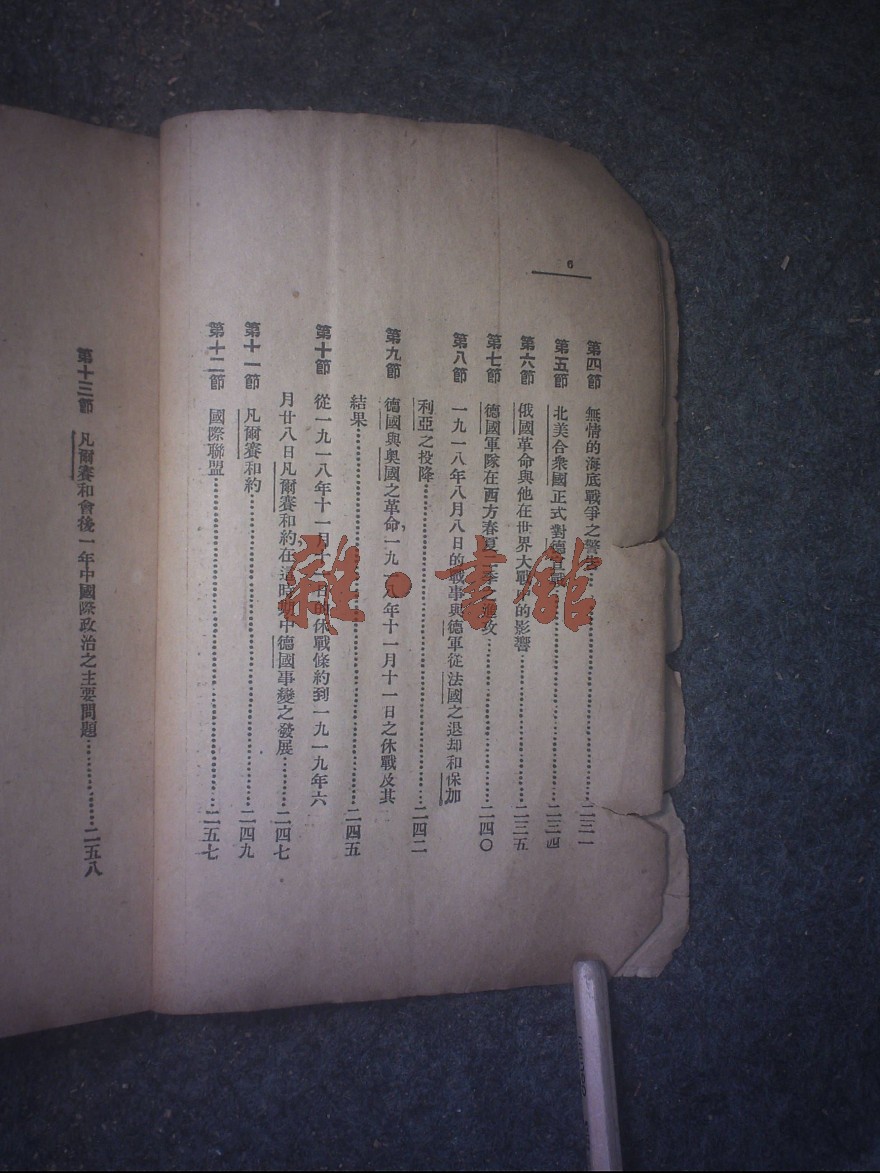 6
第四節 無情的海底戰爭之警告……二三一
第五節 北美合衆國正式對德宣戰……二三四
第六節 俄國革命與他在世界大戰中的影響……二三五
第七節 德國軍隊在西方春夏二季之進攻……二四〇
第八節 一九一八年八月八日的戰事與德軍從法國之退却和保加
利亞之投降……二四二
第九節 德國與奧國之革命,一九一八年十一月十一日之休戰及其
結果……二四五
第十節 從一九一八年十一月十一日的休戰條約到一九一九年六
月廿八日凡爾賽和約,在這時期中德國事變之發展……二四七
第十一節 凡爾賽和約……二四九
第十二節 國際聯盟……二五七
第十三節 凡爾賽和會後一年中國際政治之主要問題……二五八
雜·書館